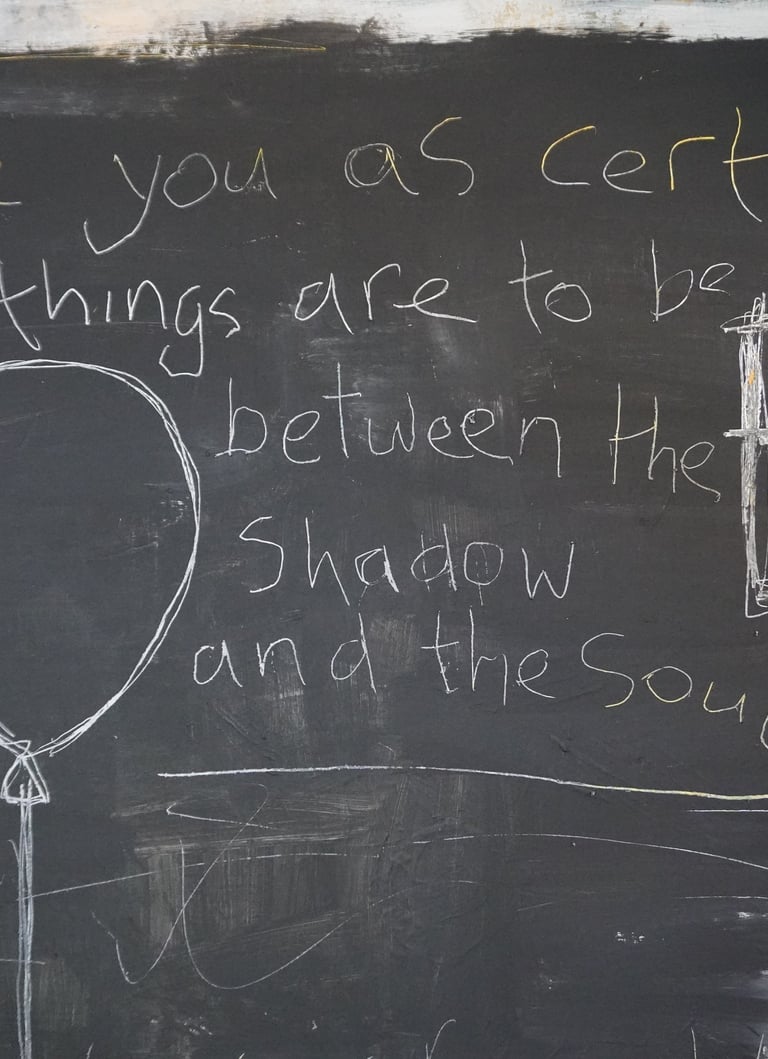 you as cert
things are to be
between the
Shadow
and the Soul